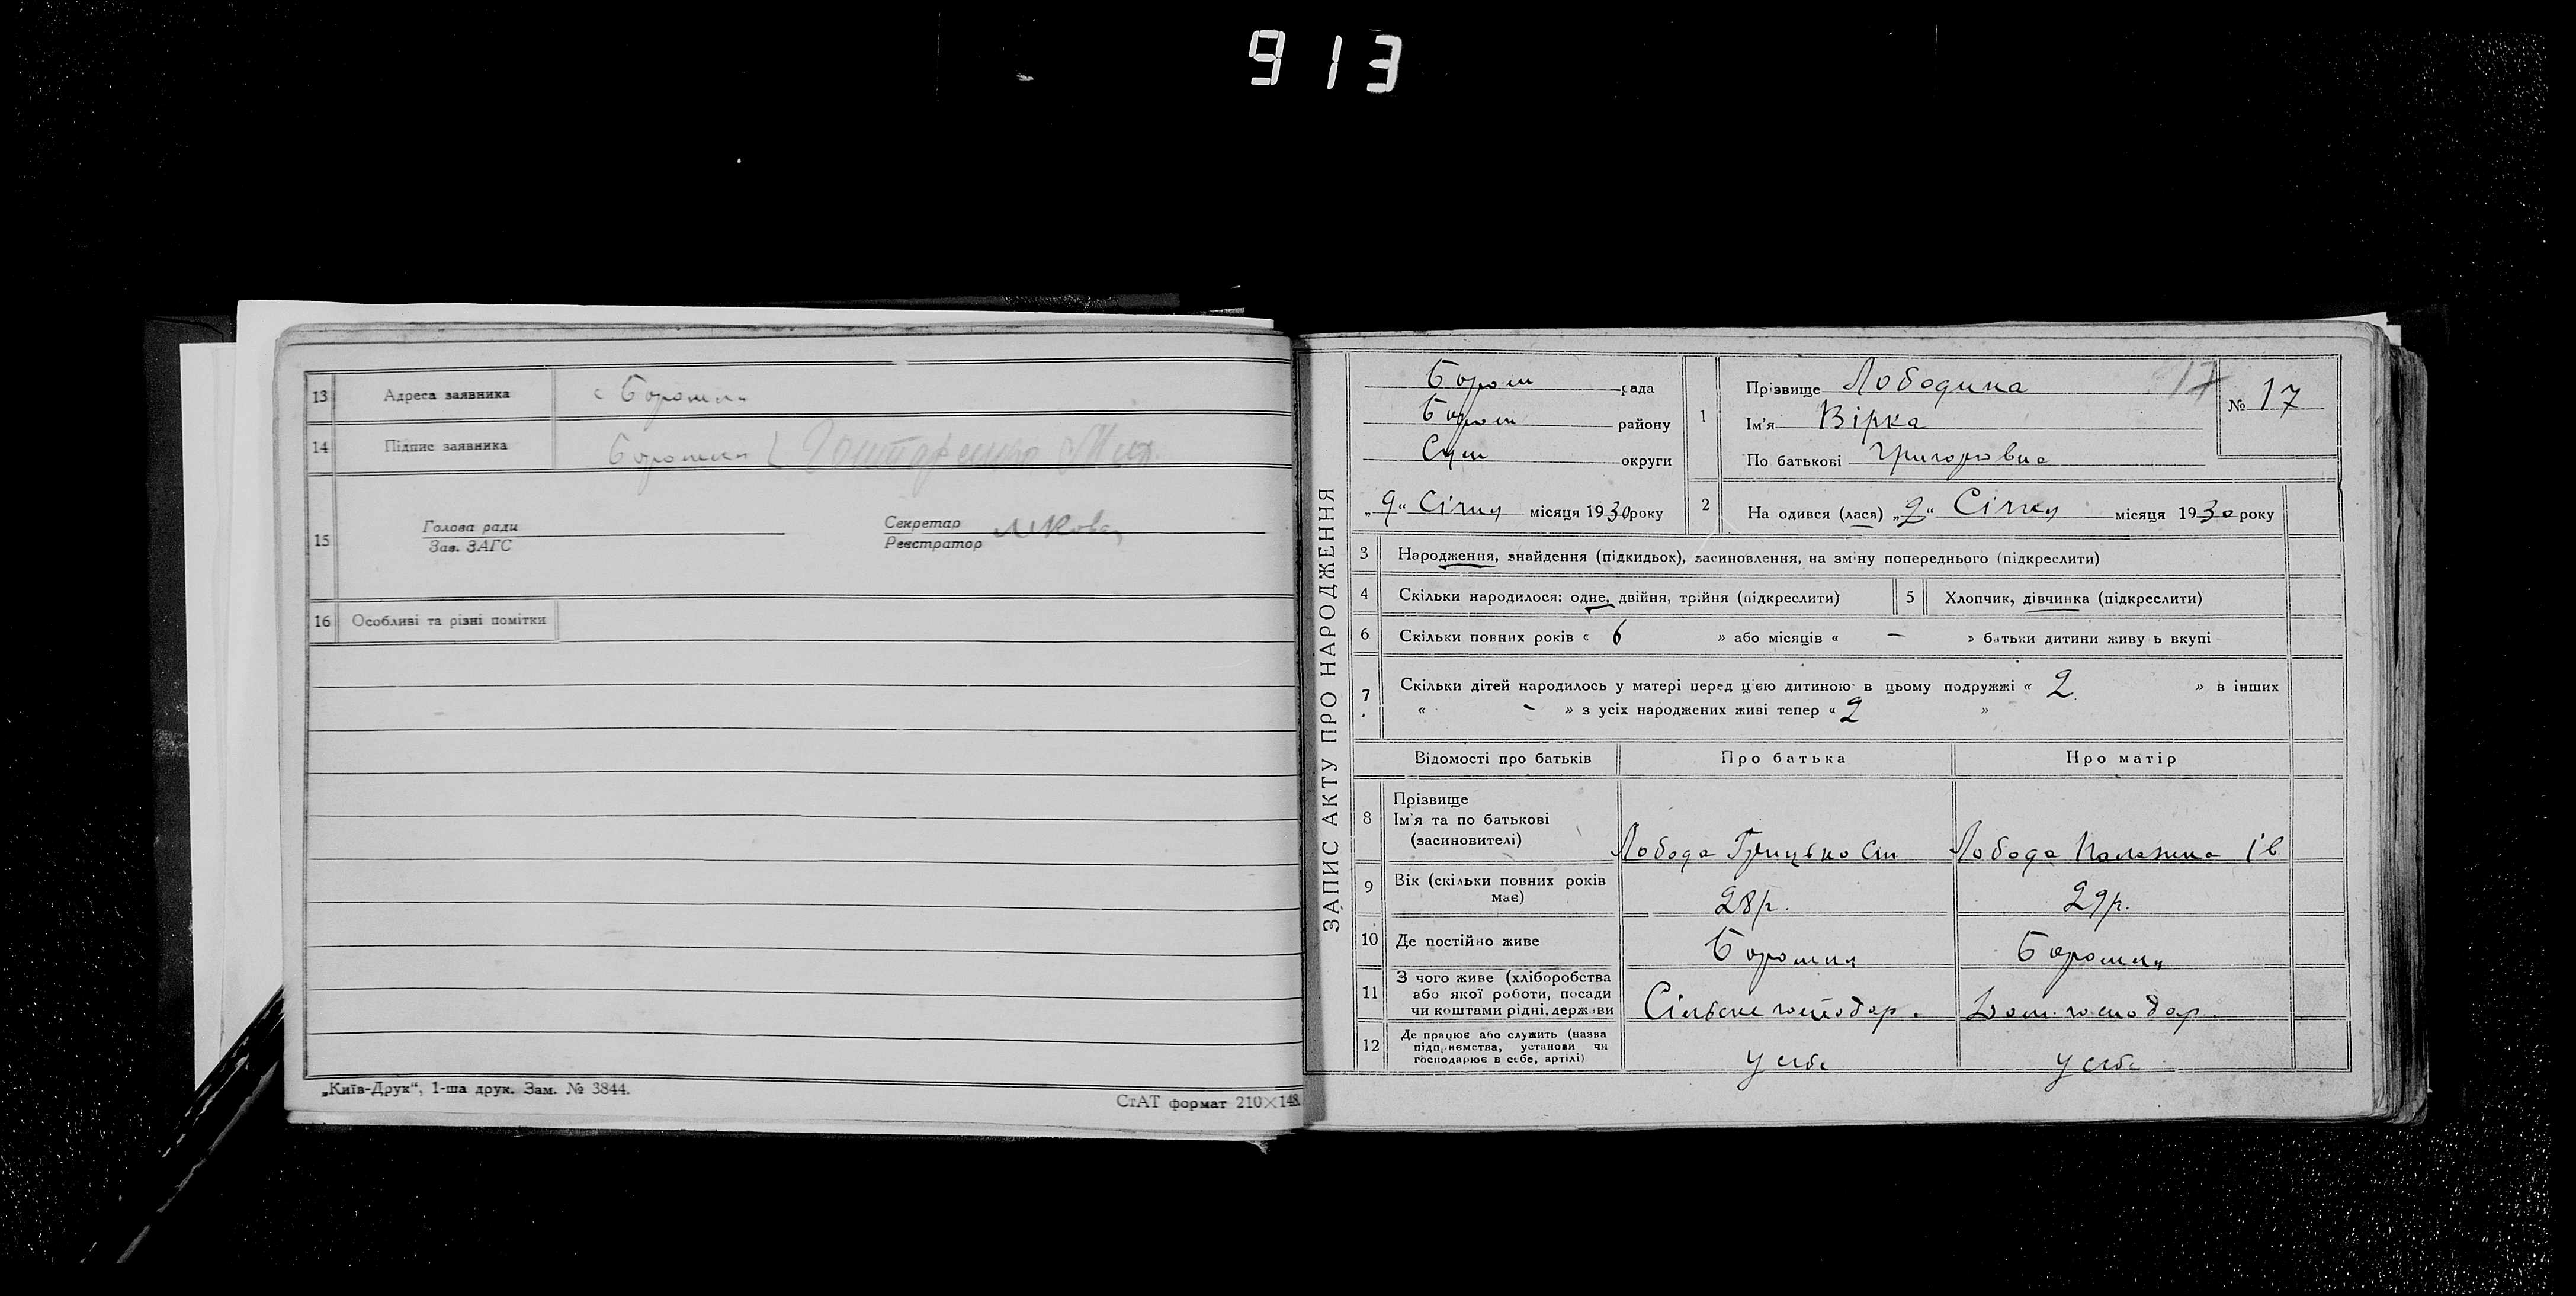 913
13 Адреса заявника с Боромля
14 Підпис заявника Боромля
15 Голова ради Секретар
Зав. ЗАГС Реєстратор
16 Особливі та різні помітки
„Київ-Друк“, 1-ша друк. Зам. № 3844.
СтАТ формат 210×148.
ЗАПИС АКТУ ПРО НАРОДЖЕННЯ
Бором рада
Бором району
Сум округи
„9“ Січня місяця 1930 року
1 Прізвище Лободина 17
Ім'я Вірка
По батькові Григоровна
№ 17
2 На одився (лася) „2“ Січня місяця 1930 року
3 Народження, знайдення (підкидьок), засиновлення, на зміну попереднього (підкреслити)
4 Скільки народилося: одне, двійня, трійня (підкреслити) 5 Хлопчик, дівчинка (підкреслити)
6 Скільки повних років « 6 » або місяців « – » батьки дитини живу ь вкупі
7 Скільки дітей народилось у матері перед цією дитиною в цьому подружжі « 2 » в інших
« - » з усіх народжених живі тепер « 2 »
Відомості про батьків Про батька Про матір
8 Прізвище
Ім'я та по батькові
(засиновителі) Лобода Грицько Сти Лобода Палажка Ів
9 Вік (скільки повних років
має) 28р. 29р.
10 Де постійно живе Боромля Боромля
11 З чого живе (хліборобства
або якої роботи, посади
чи коштами рідні, держави Сільське господар. Дом. господар.
12 Де працює або служить (назва
підприємства, установи чи
господарює в себе, артілі) у себе у себе